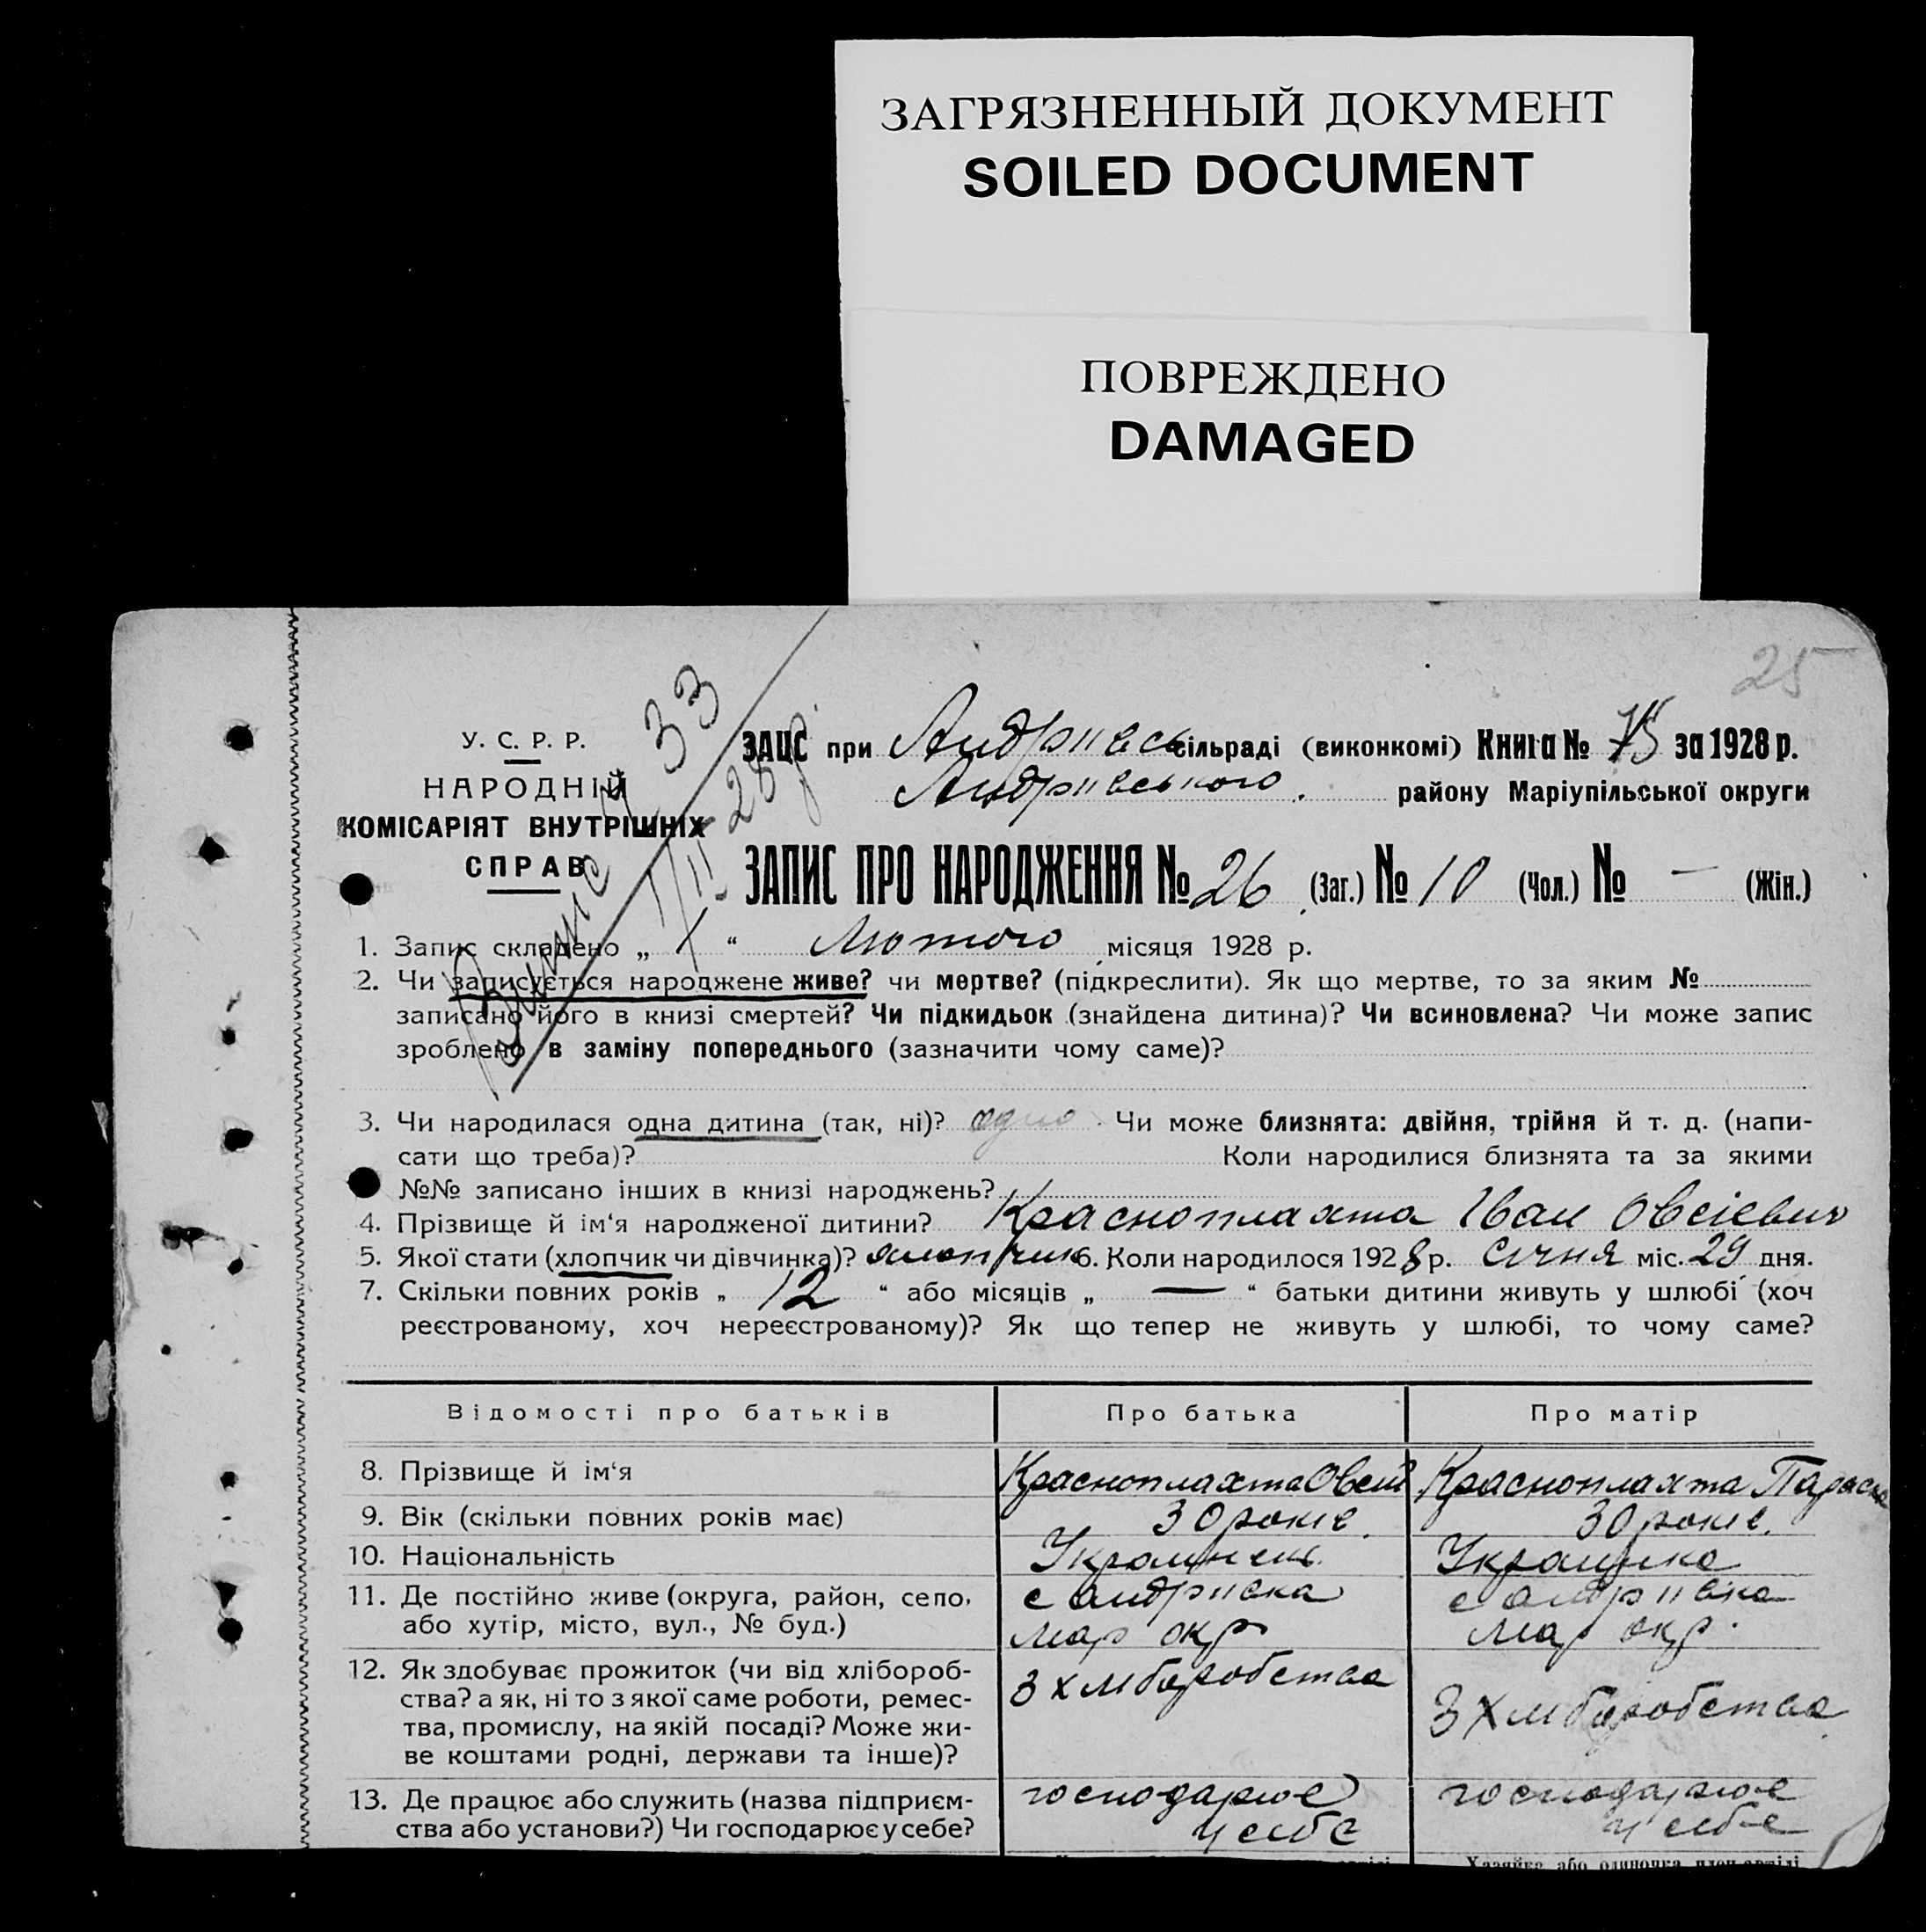 ЗАГРЯЗНЕННЫЙ ДОКУМЕНТ
SOILED DOCUMENT
ПОВРЕЖДЕНО
DAMAGED
25
У. С. Р. Р.
НАРОДНІЙ
КОМІСАРІЯТ ВНУТРІШНІХ
СПРАВ
33
28 р.
ЗАЦС при Андріївсь сільраді (виконкомі) Книга № 75 за 1928 р.
Андріівського. району Маріупільської округи
ЗАПИС ПРО НАРОДЖЕННЯ № 26 (Заг.) № 10 (Чол.) № — (Жін.)
1. Запис складено „ 1 “ Лютого місяця 1928 р.
2. Чи записується народжене живе? чи мертве? (підкреслити). Як що мертве, то за яким №
записано його в книзі смертей? Чи підкидьок (знайдена дитина)? Чи всиновлена? Чи може запис
зроблено в заміну попереднього (зазначити чому саме)?
3. Чи народилася одна дитина (так, ні)? одно Чи може близнята: двійня, трійня й т. д. (напи-
сати що треба)? Коли народилися близнята та за якими
№№ записано інших в книзі народжень?
4. Прізвище й ім‘я народженої дитини? Красноплахта Іван Овсієвич
5. Якої стати (хлопчик чи дівчинка)? хлопчик 6. Коли народилося 1928 р. Січня міс. 29 дня.
7. Скільки повних років „ 12 “ або місяців „ — “ батьки дитини живуть у шлюбі (хоч
реєстрованому, хоч нереєстрованому)? Як що тепер не живуть у шлюбі, то чому саме?
Відомості про батьків Про батька Про матір
8. Прізвище й ім‘я Красноплахта Овсій Красноплахта Параска
9. Вік (скільки повних років має) 30 років. 30 років.
10. Національність Українець Українка
11. Де постійно живе (округа, район, село, с Андріівка с Андріівка
або хутір, місто, вул., № буд.) Мар окр Мар окр.
12. Як здобуває прожиток (чи від хлібороб- З хліборобства З хліборобства
ства? а як, ні то з якої саме роботи, ремес-
тва, промислу, на якій посаді? Може жи-
ве коштами родні, держави та інше)?
13. Де працює або служить (назва підприєм- господарює господарює
ства або установи?) Чи господарює у себе? у себе у себе
Хазяйка або одиночка член артілі